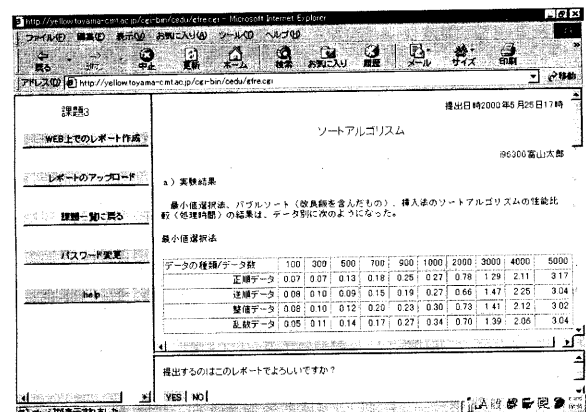 http://yellow.toyama-cmt.ac.jp/cgi-bin/cedu/etre.cgi - Microsoft Internet Explorer
ファイル(F) 編集(E) 表示(V) お気に入り(A) ツール(T) ヘルプ(H)
戻る 中止 更新 ホーム 検索 お気に入り 履歴 メール サイズ 印刷
アドレス(D) http://yellow.toyama-cmt.ac.jp/cgi-bin/cedu/etre.cgi 移動
課題3
WEB上でのレポート作成
レポートのアップロード
課題一覧に戻る
パスワード変更
help
提出日時2000年5月25日17時
ソートアルゴリスム
i96300富山太郎
a) 実験結果
最小値選択法、バブルソート(改良版を含んだもの)、挿入法のソートアルゴリズムの性能比
較(処理時間)の結果は、データ別に次のようになった。
最小値選択法
データの種類/データ数 100 300 500 700 900 1000 2000 3000 4000 5000
正順データ 0.07 0.07 0.13 0.18 0.25 0.27 0.78 1.29 2.11 3.17
逆順データ 0.08 0.10 0.09 0.15 0.19 0.27 0.66 1.47 2.25 3.04
整値データ 0.08 0.10 0.12 0.20 0.23 0.30 0.73 1.41 2.12 3.02
乱数データ 0.05 0.11 0.14 0.17 0.27 0.34 0.70 1.39 2.06 3.04
提出するのはこのレポートでよろしいですか?
YES NO